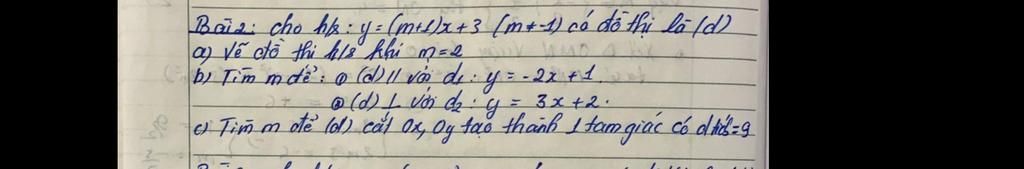 Bài 2: cho h/s: y = (m+1)x + 3 (m ≠ -1) có đồ thị là (d)
a) Vẽ đồ thị h/s khi m = 2
b) Tìm m để: ① (d) // với d₁: y = -2x + 1
② (d) ⊥ với d₂: y = 3x + 2.
c) Tìm m để (d) cắt Ox, Oy tạo thành 1 tam giác có = 9